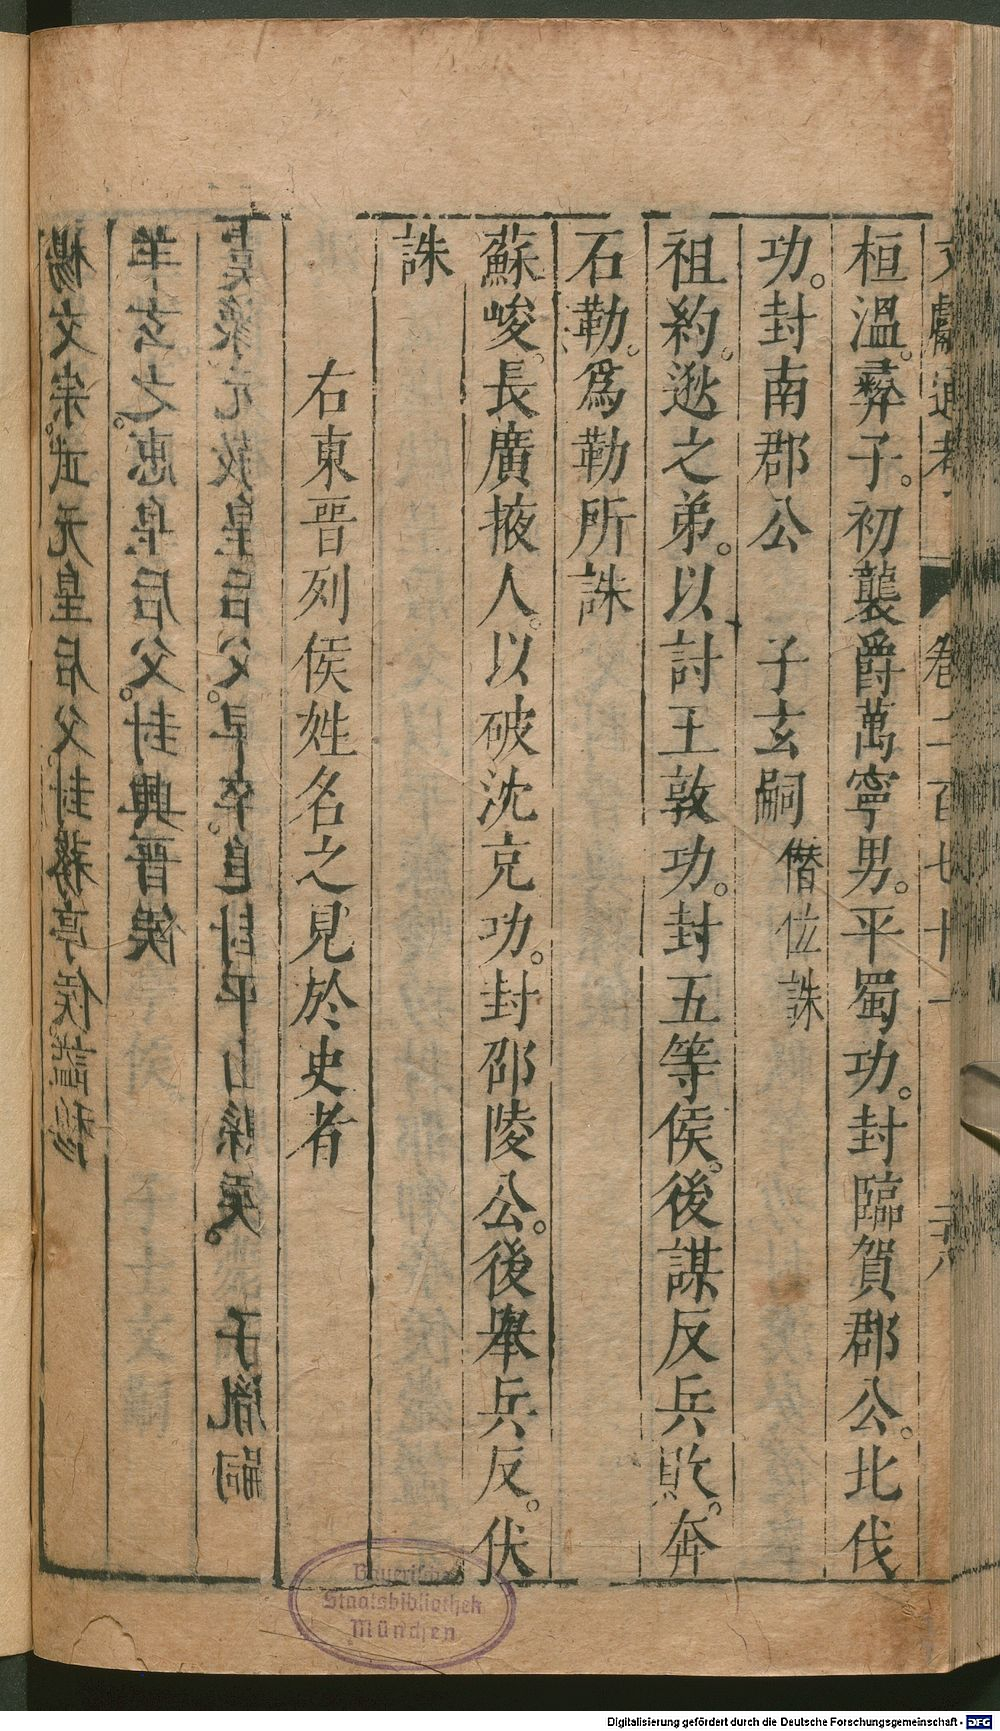 桓溫。彝子。初襲爵萬寧男。平蜀功。封臨賀郡公。北伐
功。封南郡公　子玄嗣 僭位誅
祖約。逖之弟。以討王敦功。封五等侯。後謀反兵敗。奔
石勒。爲勒所誅
蘇峻。長廣掖人。以破沈充功。封邵陵公。後舉兵反。伏
誅
右東晋列侯姓名之見於史者
虞豫。元敬皇后父。早卒。追封平山縣侯。　子胤嗣
羊玄之。惠皇后父。封興晉侯
楊文宗。武元皇后父。封蓩亭侯。謚穆
文獻通考　卷二百七十一
Bayerische
Staatsbibliothek
München
Digitalisierung gefördert durch die Deutsche Forschungsgemeinschaft - DFG